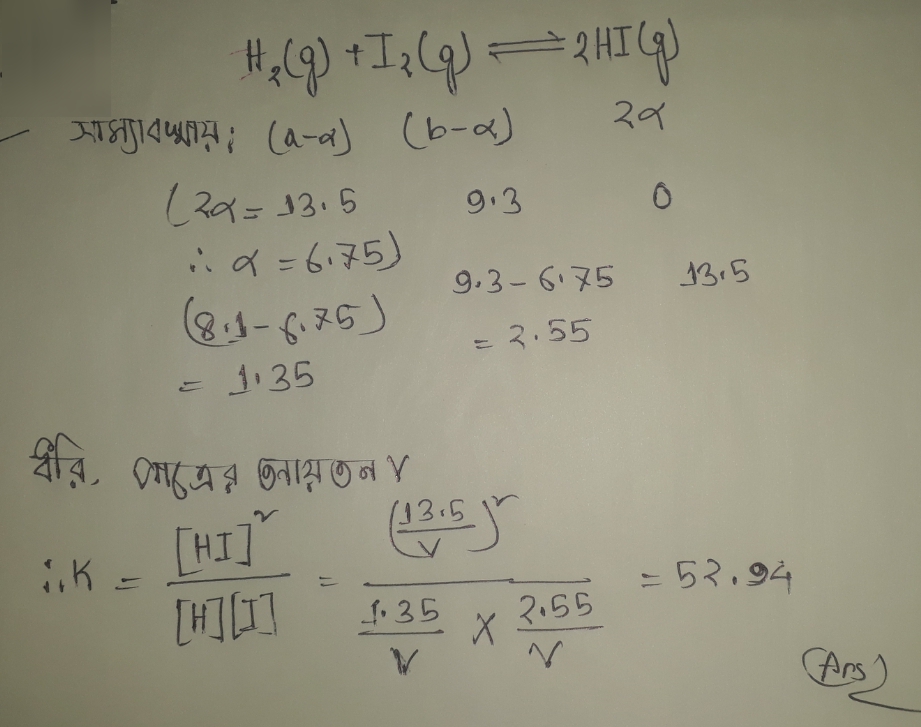 H₂(g) + I₂(g) ⇌ 2HI(g)
সাম্যাবস্থায়; (a-α) (b-α) 2α
(2α = 13.5 9.3 0
∴ α = 6.75)
9.3 - 6.75 13.5
(8.1 - 6.75)
= 2.55
= 1.35
ধরি, পাত্রের আয়তন V
∴ K = [HI]² / [H][I] = (13.5/V)² / (1.35/V × 2.55/V) = 52.94
(Ans)